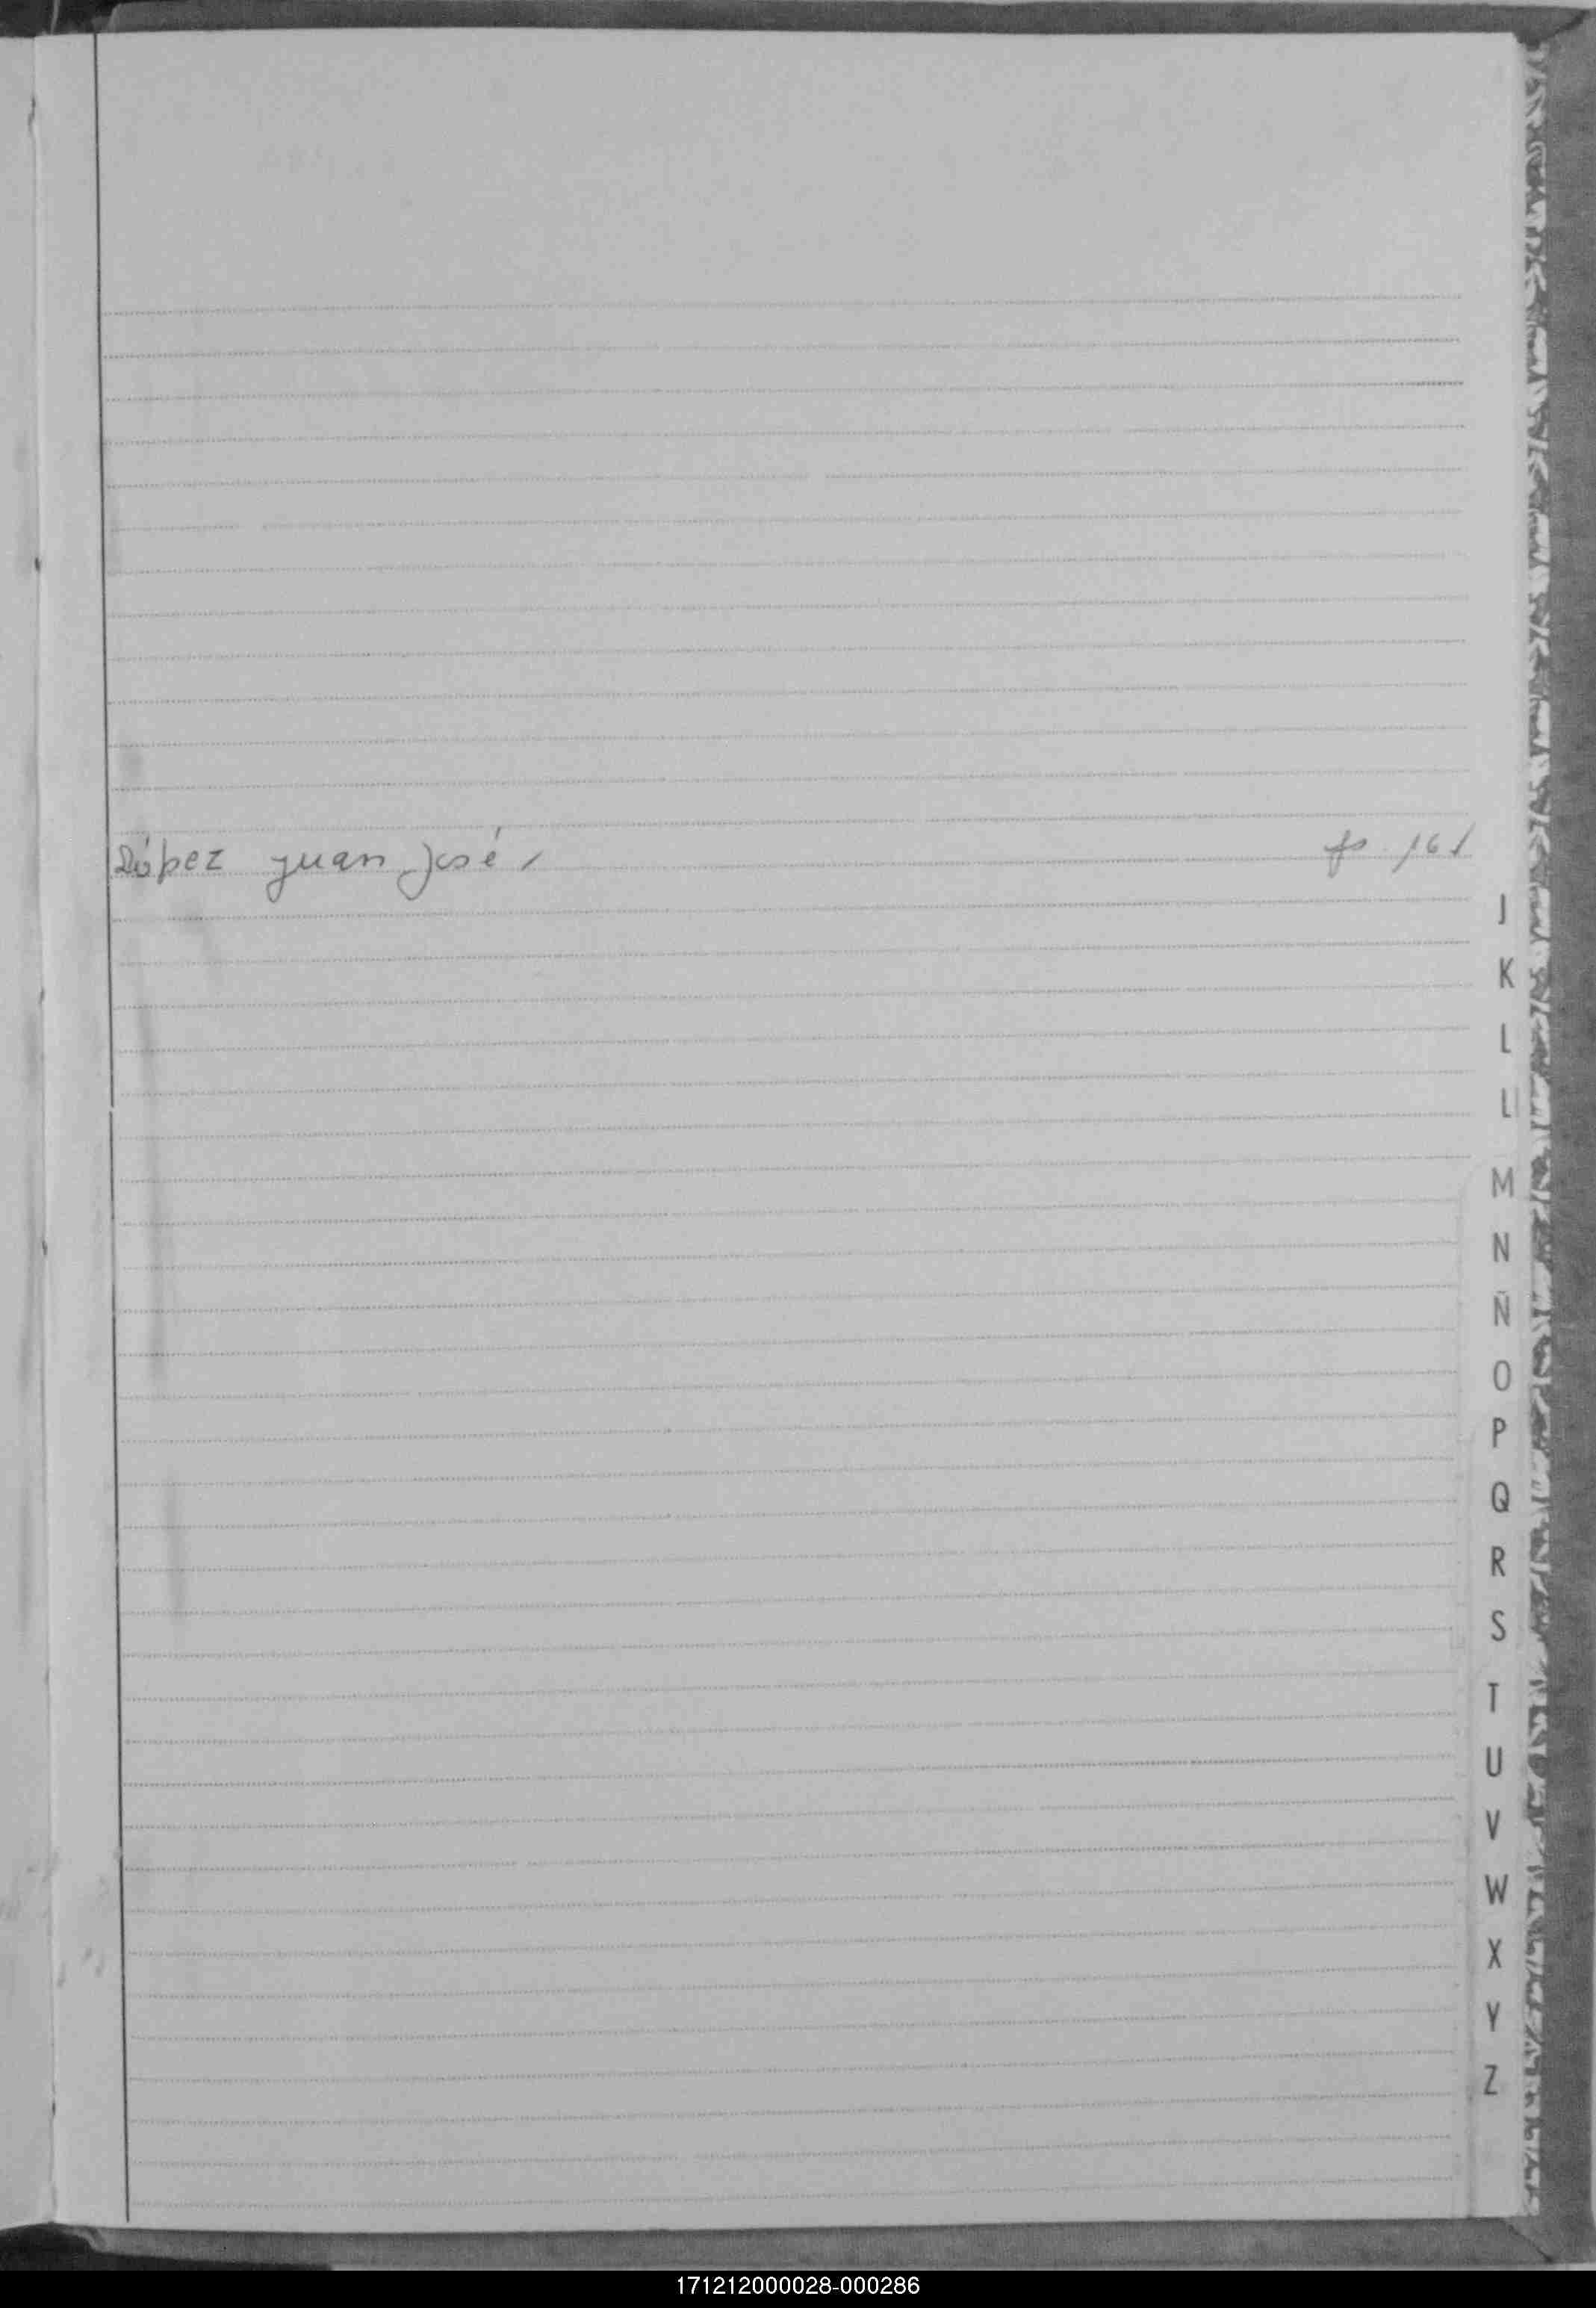 López Juan José, fs. 161
J
K
L
Ll
M
N
Ñ
O
P
Q
R
S
T
U
V
W
X
Y
Z
171212000028-000286